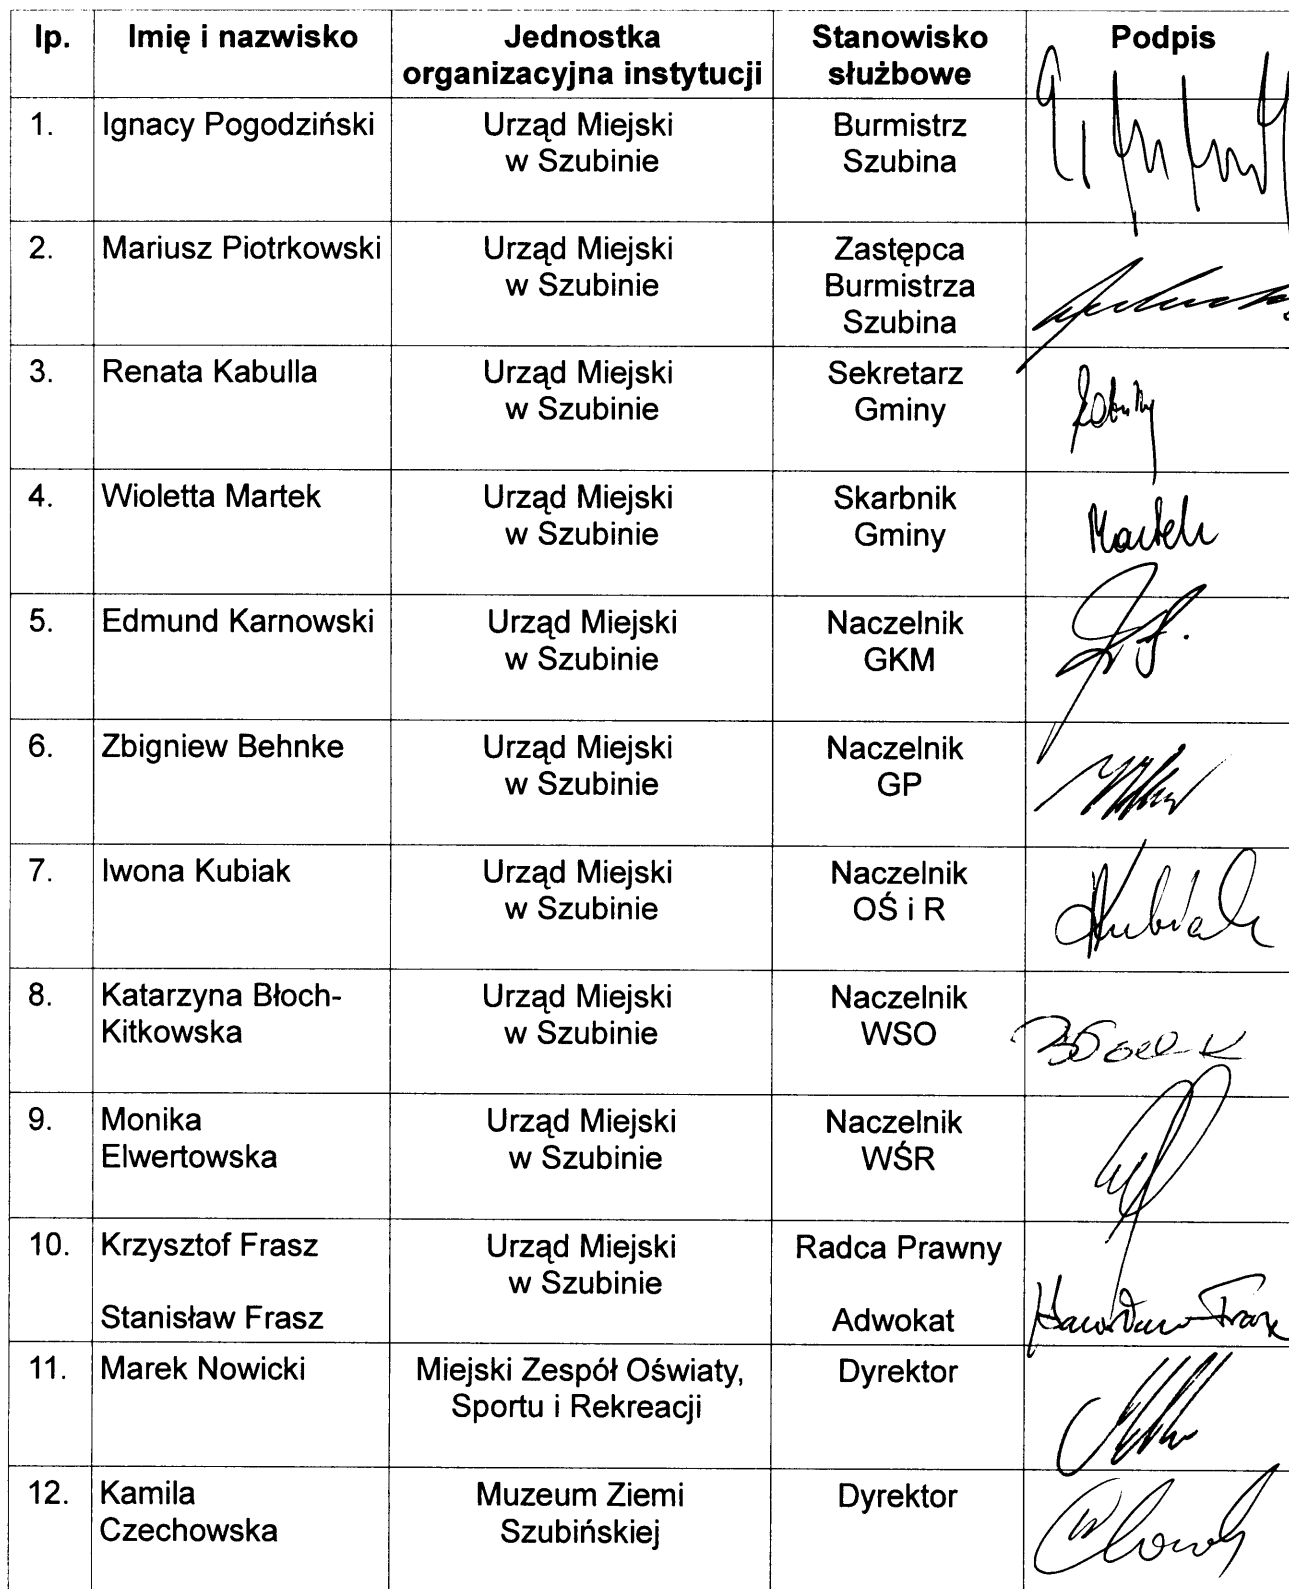 lp. Imię i nazwisko Jednostka organizacyjna instytucji Stanowisko służbowe Podpis
1. Ignacy Pogodziński Urząd Miejski w Szubinie Burmistrz Szubina
2. Mariusz Piotrkowski Urząd Miejski w Szubinie Zastępca Burmistrza Szubina
3. Renata Kabulla Urząd Miejski w Szubinie Sekretarz Gminy
4. Wioletta Martek Urząd Miejski w Szubinie Skarbnik Gminy Martek
5. Edmund Karnowski Urząd Miejski w Szubinie Naczelnik GKM
6. Zbigniew Behnke Urząd Miejski w Szubinie Naczelnik GP
7. Iwona Kubiak Urząd Miejski w Szubinie Naczelnik OŚ i R Kubiak
8. Katarzyna Błoch-Kitkowska Urząd Miejski w Szubinie Naczelnik WSO
9. Monika Elwertowska Urząd Miejski w Szubinie Naczelnik WŚR
10. Krzysztof Frasz Urząd Miejski w Szubinie Radca Prawny
Stanisław Frasz Adwokat
11. Marek Nowicki Miejski Zespół Oświaty, Sportu i Rekreacji Dyrektor
12. Kamila Czechowska Muzeum Ziemi Szubińskiej Dyrektor